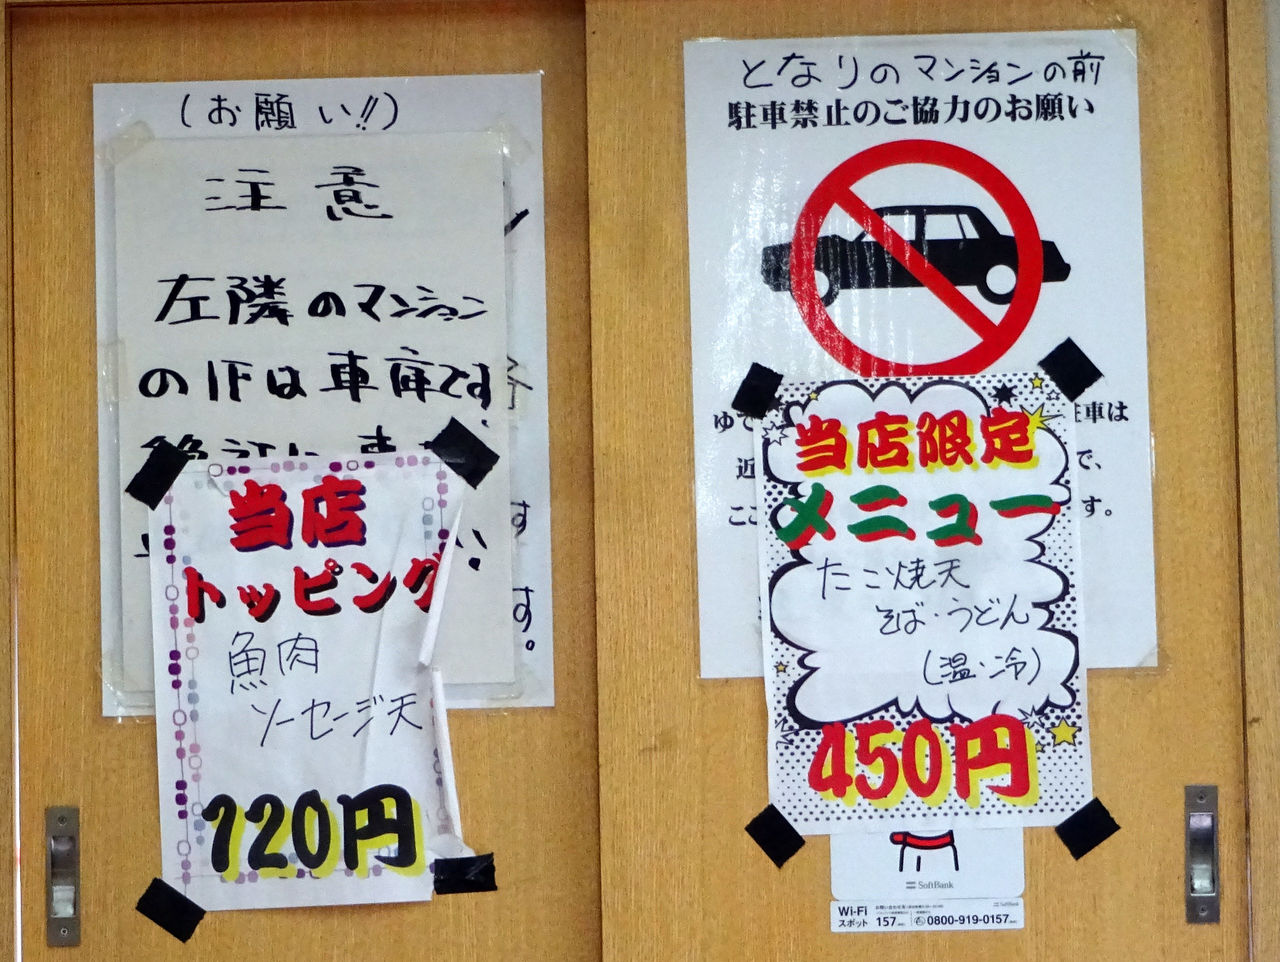 (お願い!!)
注意
左隣のマンション
の1Fは車庫です
す
す。
当店
トッピング
魚肉
ソーセージ天
120円
となりのマンションの前
駐車禁止のご協力のお願い
ゆで
駐車は
近
で、
ここ
す。
当店限定
メニュー
たこ焼天
そば・うどん
(温・冷)
450円
SoftBank
Wi-Fi
スポット
157
0800-919-0157
SoftBank